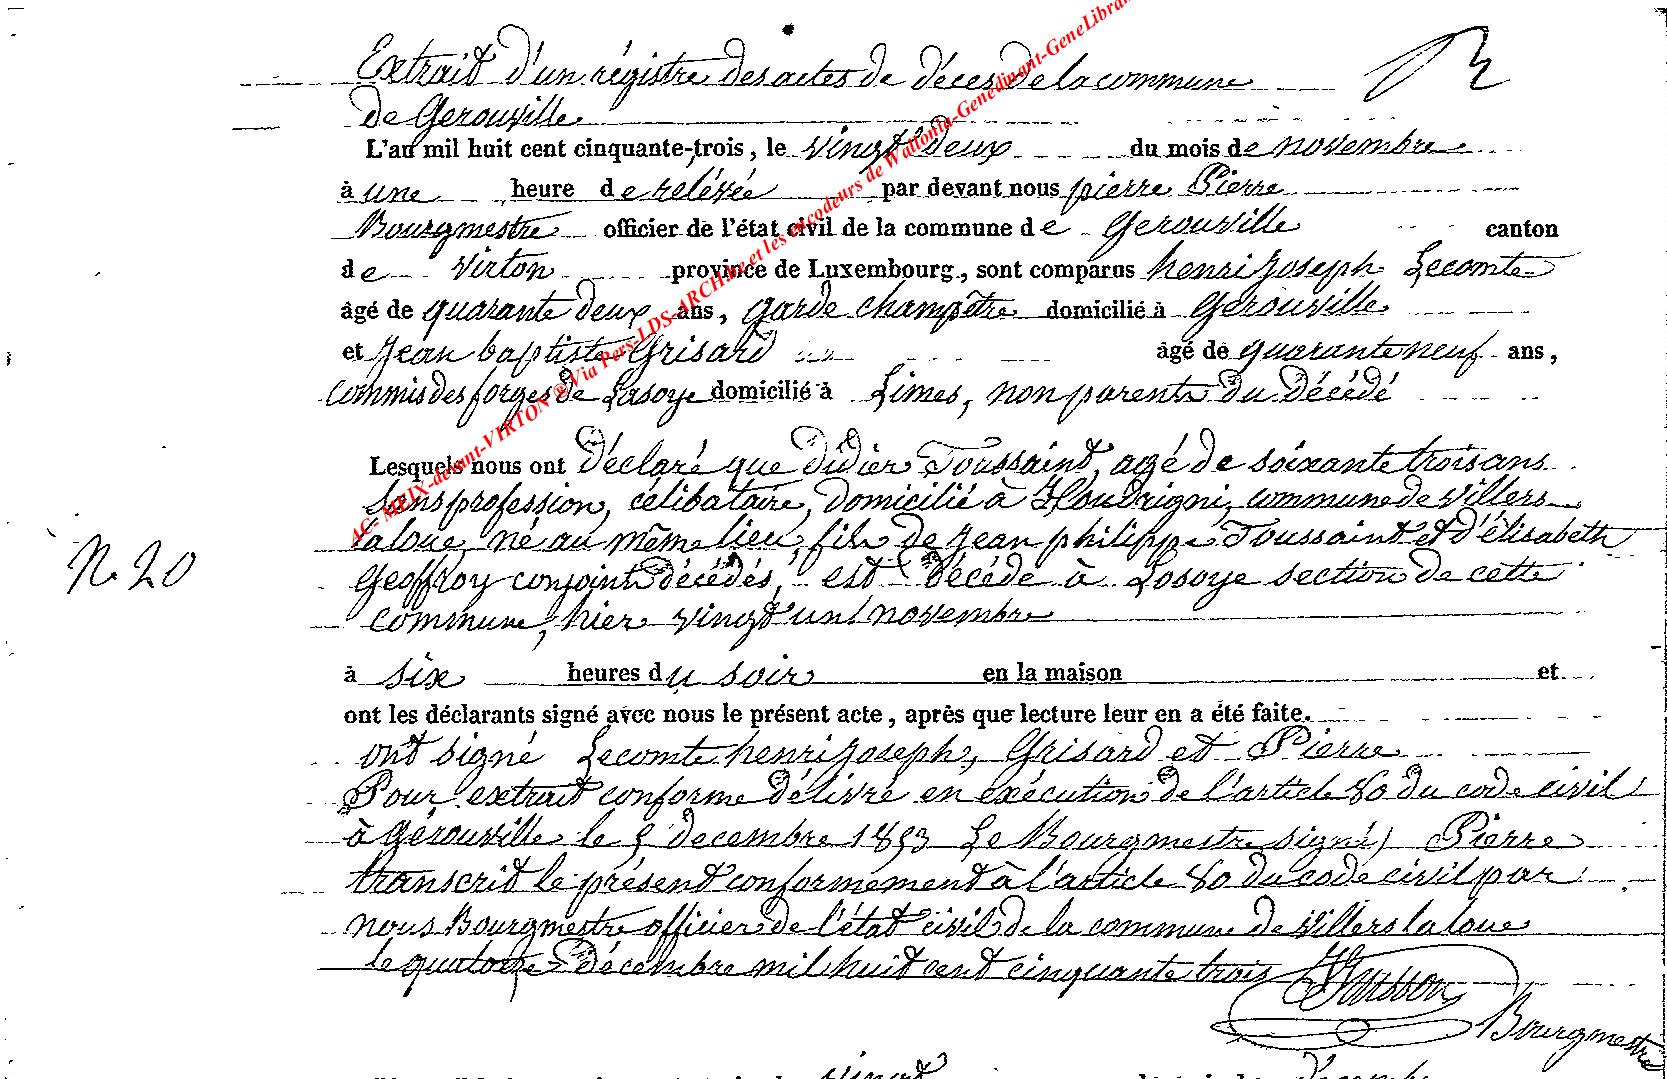 Extrait d'un régistre des actes de décès de la commune
de Gerouville
L'an mil huit cent cinquante-trois, le vingt deux du mois de novembre
à une heure de relévée par devant nous pierre Pierre
Bourgmestre officier de l'état civil de la commune de Gerouville canton
de Virton province de Luxembourg, sont comparus henri joseph Lecomte
âgé de quarante deux ans, garde champêtre domicilié à Gerouville
et Jean baptiste Grisard âgé de quarante neuf ans,
commis des forges de Lasoye domicilié à Limes, non parents du décédé
Lesquels nous ont déclaré que didier Toussaint, agé de soixante trois ans
sans profession, célibataire, domicilié à Houdrigni, commune de villers
laloue, né au même lieu, fils de jean philippe Toussaint et d'élisabeth
N. 20
Geoffroy conjoints décédés, est décédé à Lasoye section de cette
commune, hier vingt un novembre
à six heures du soir en la maison et
ont les déclarants signé avec nous le présent acte, après que lecture leur en a été faite.
ont signé Lecomte henri joseph, Grisard et Pierre
Pour extrait conforme délivré en exécution de l'article 80 du code civil
à Gérouville le 5 decembre 1853 Le Bourgmestre signé) Pierre
transcrit le présent conformément à l'article 80 du code civil par
nous Bourgmestre officier de l'état civil de la commune de villers laloue
le quatorze décembre mil huit cent cinquante trois
Bourgmestre
vingt
AC-MEIX-devant-VIRTON ®Via Pers-LDS-ARCH.be et les encodeurs de Wallonia-Genedinant-GeneLibran